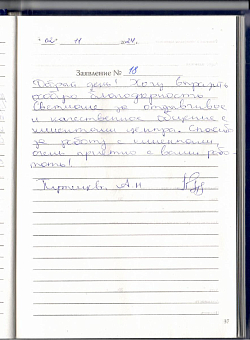 "02" 11 2024.
Заявление № 18
Добрый день! Хочу выразить
особую благодарность
Светлане за отзывчивое
и качественное общение с
клиентами центра. Спасибо
за работу с клиентами,
очень приятно с вами рабо-
тать!
А.И
37